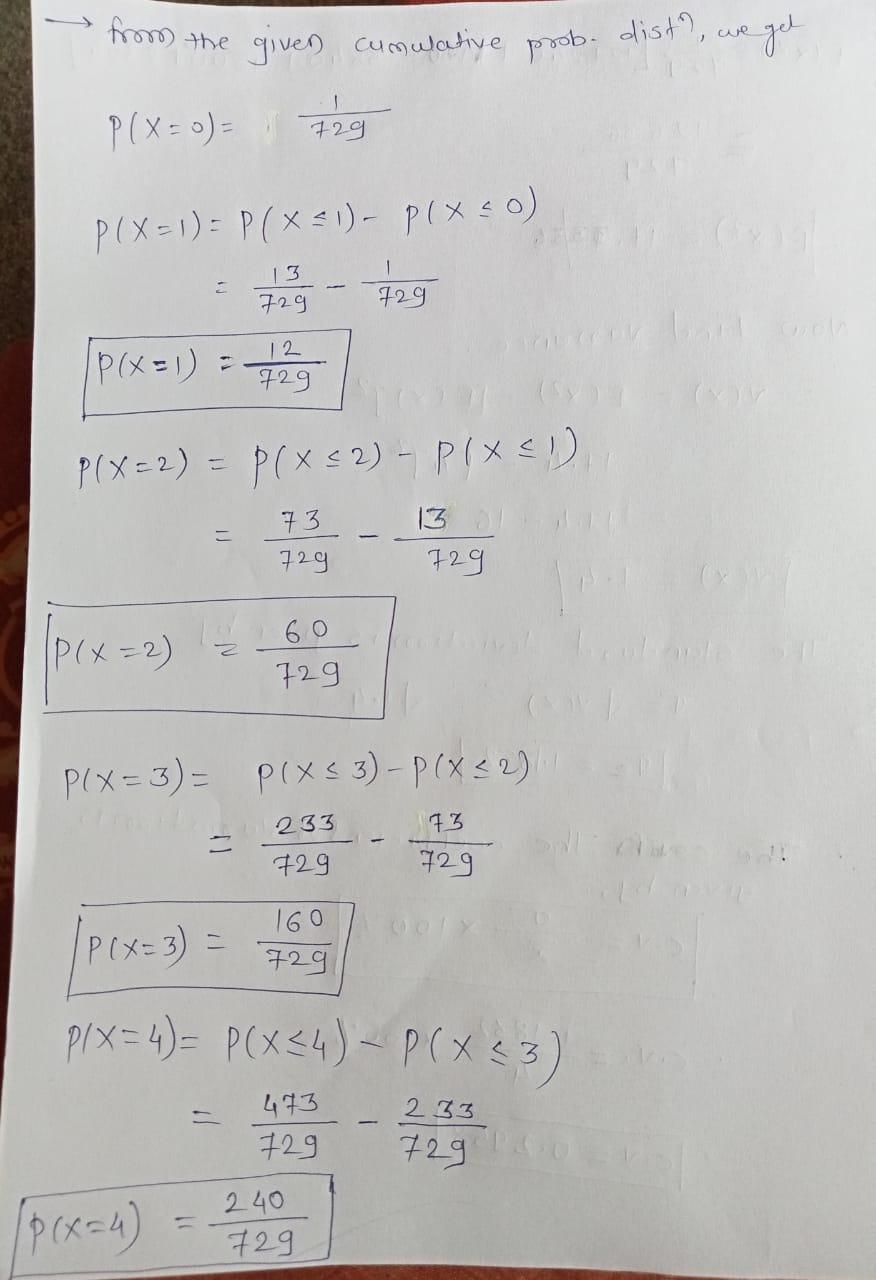 → from the given cumulative prob. distⁿ, we get
P(X=0)= 1/729
P(X=1)= P(X≤1)- P(X≤0)
= 13/729 - 1/729
P(X=1) = 12/729
P(X=2) = P(X≤2) - P(X≤1)
= 73/729 - 13/729
P(X=2) = 60/729
P(X=3)= P(X≤3)-P(X≤2)
= 233/729 - 73/729
P(X=3) = 160/729
P(X=4)= P(X≤4) - P(X≤3)
= 473/729 - 233/729
P(X=4) = 240/729